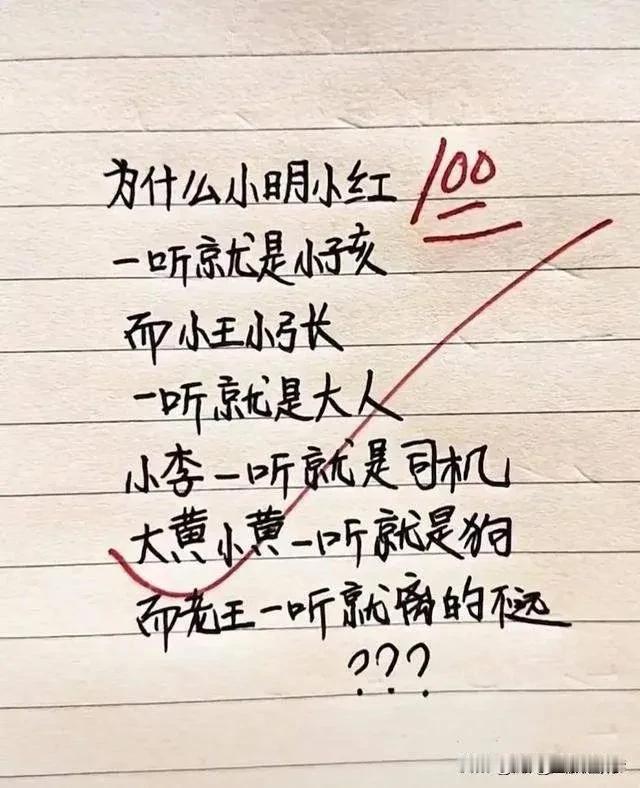 为什么小明小红
100
一听就是小孩
而小王小张
一听就是大人
小李一听就是司机
大黄小黄一听就是狗
而老王一听就离的不远
???